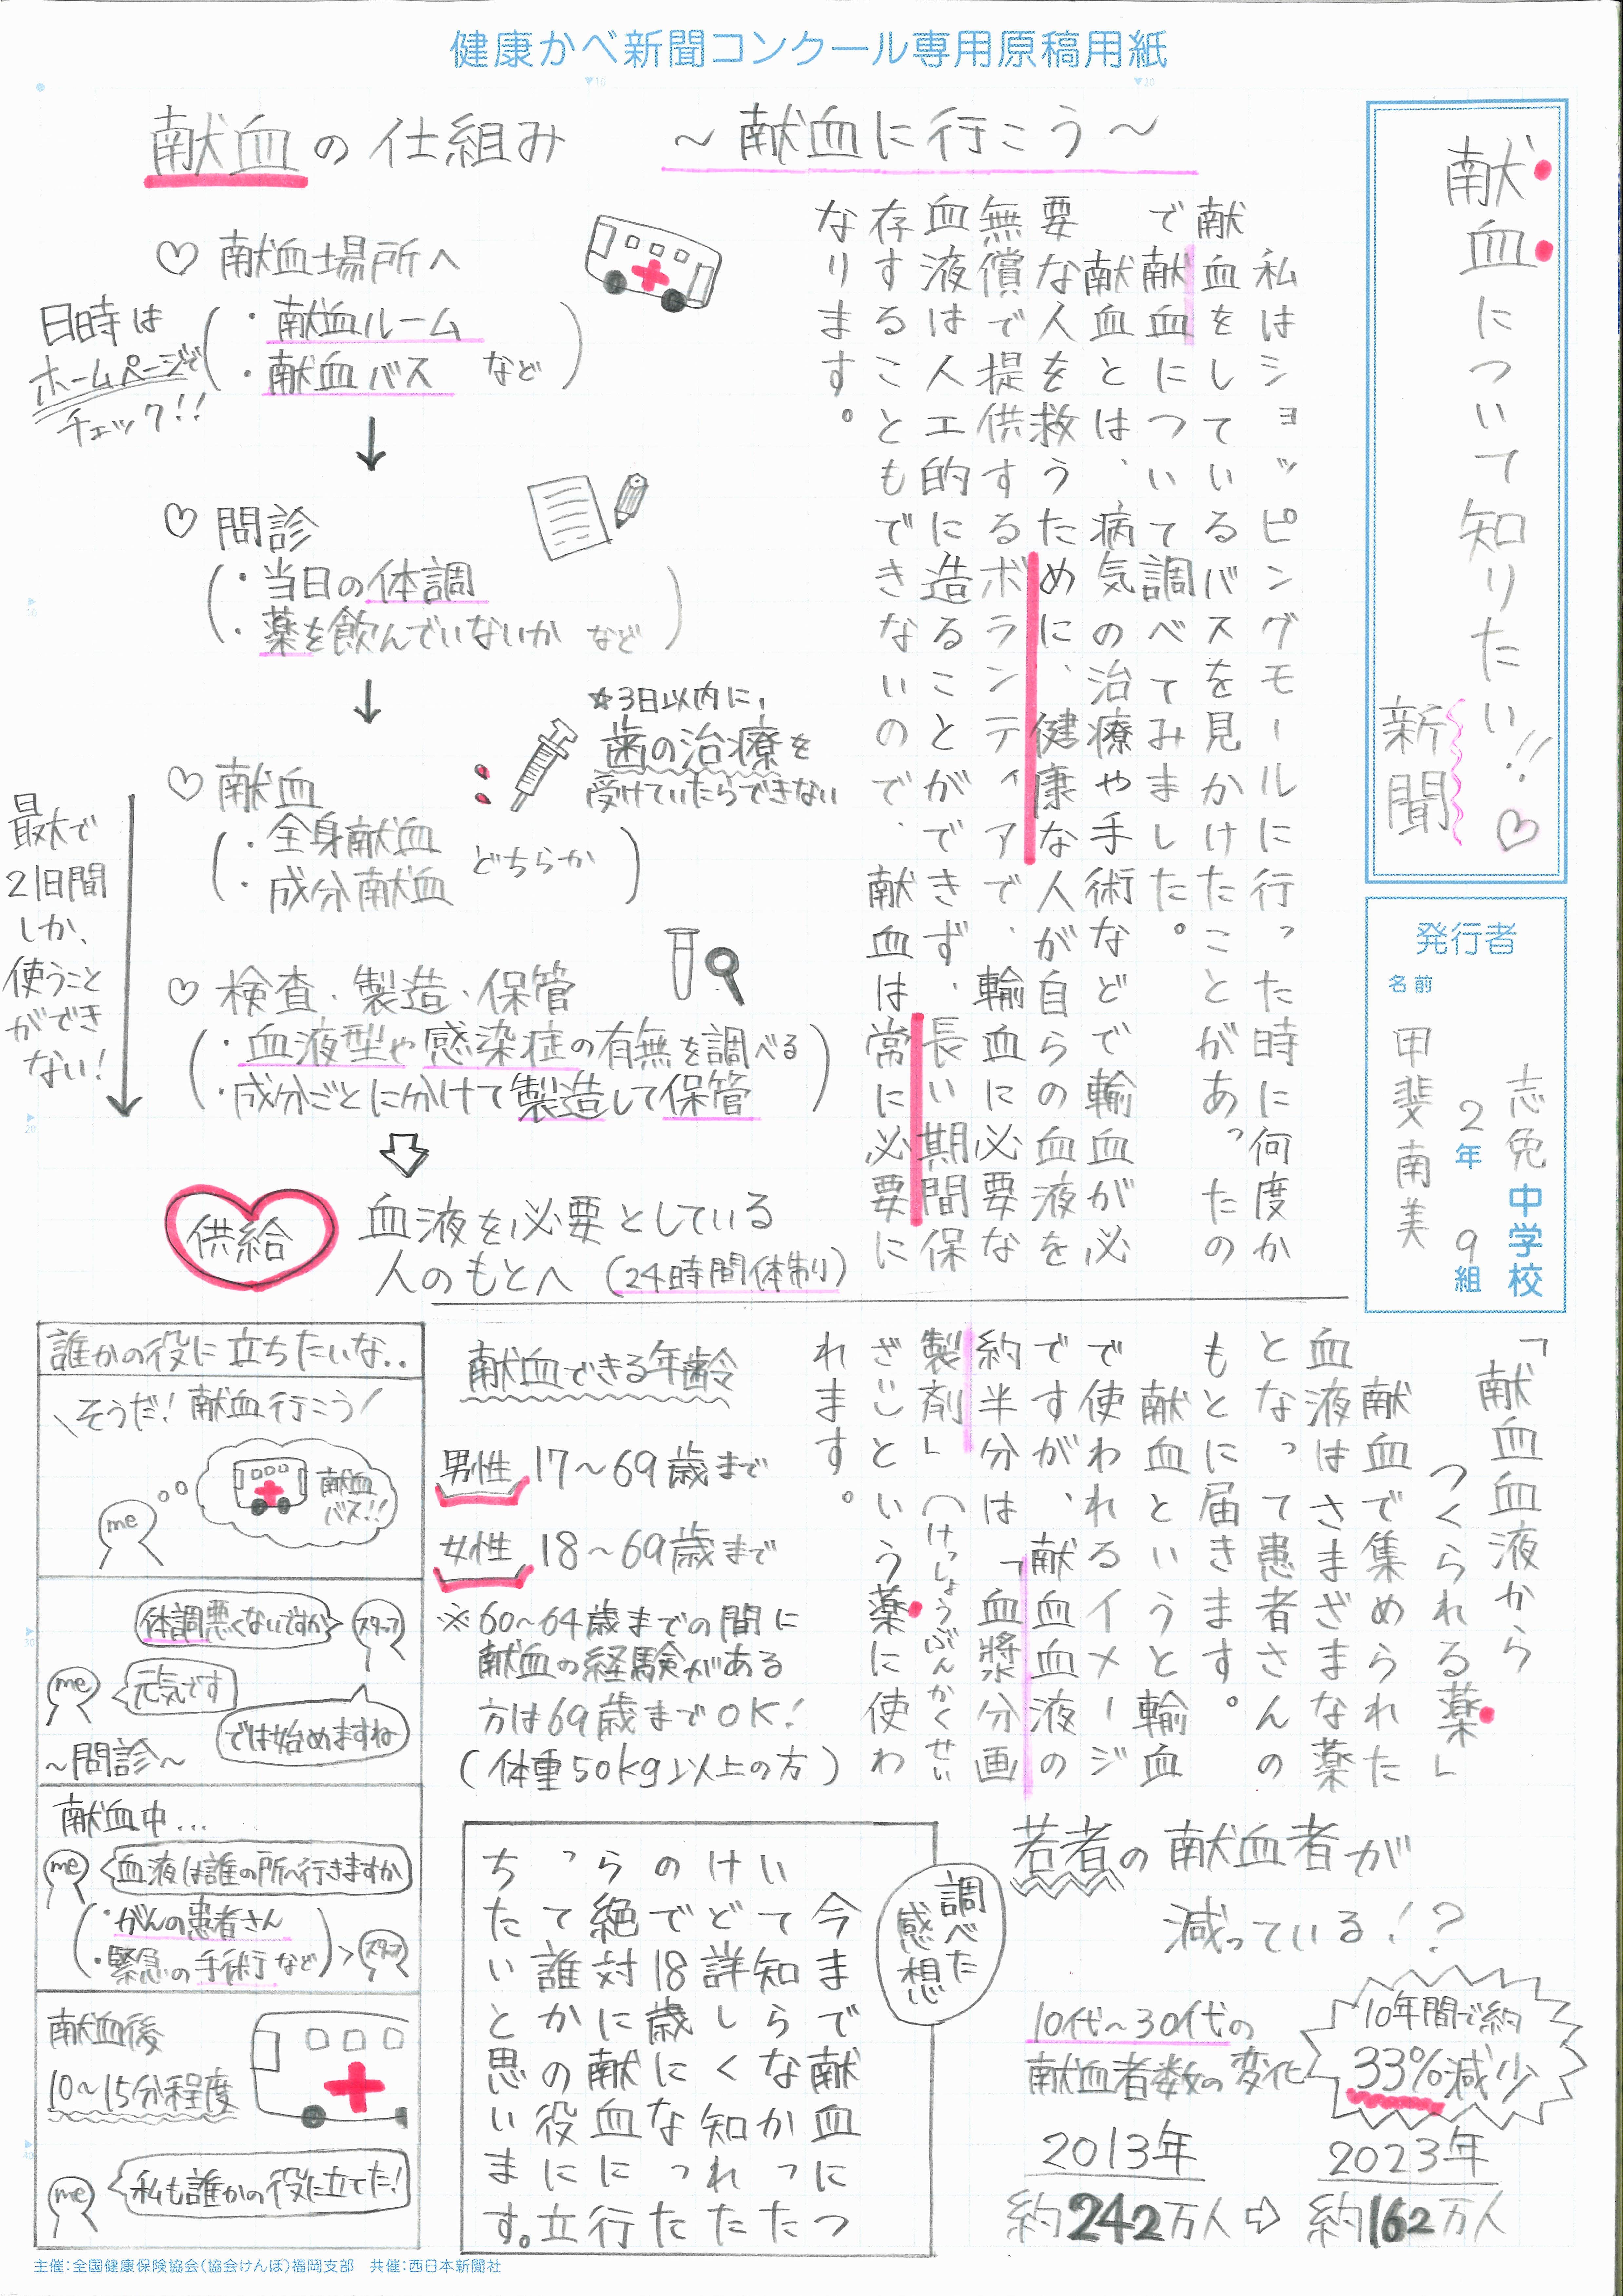 健康かべ新聞コンクール専用原稿用紙
献血について知りたい!!♡
新聞
発行者
名前
志免中学校
2年 9組
甲斐南美
献血の仕組み ～献血に行こう～
私はショッピングモールに行った時に何度か
献血をしているバスを見かけたことがあったの
で献血について調べてみました。
献血とは、病気の治療や手術などで輸血が必
要な人を救うために、健康な人が自らの血液を
無償で提供するボランティアで、輸血に必要な
血液は人工的に造ることができず、長い期間保
存することもできないので、献血は常に必要に
なります。
♡ 献血場所へ
日時は
ホームページで
チェック!!
・献血ルーム
・献血バス など
↓
♡ 問診
・当日の体調
・薬を飲んでいないか など
↓
☆3日以内に、
歯の治療を
受けていたらできない
♡ 献血
・全身献血
・成分献血
どちらか
♡ 検査・製造・保管
・血液型や感染症の有無を調べる
・成分ごとに分けて製造して保管
最大で
21日間
しか、
使うこと
ができ
ない!
供給
血液を必要としている
人のもとへ (24時間体制)
「献血血液から
つくられる薬」
献血で集められた
血液はさまざまな薬
となって患者さんの
もとに届きます。
献血というと輸血
で使われるイメージ
ですが、献血血液の
約半分は「血漿分画
製剤」(けっしょうぶんかくせい
ざい)という薬に使わ
れます。
献血できる年齢
男性 17～69歳まで
女性 18～69歳まで
※60～64歳までの間に
献血の経験がある
方は69歳までOK!
(体重50kg以上の方)
誰かの役に立ちたいな..
そうだ!献血行こう
献血
バス!!
me
体調悪くないですか
スタッフ
me
元気です
では始めますね
～問診～
献血中...
me
血液は誰の所へ行きますか
・がんの患者さん
・緊急の手術など
スタッフ
献血後
10～15分程度
me
私も誰かの役に立てた!
調べた
感想
今まで献血につ
いて知らなかった
けど詳しく知れた
ので18歳になった
ら絶対に献血に行
って誰かの役に立
ちたいと思います。
若者の献血者が
減っている!?
10代～30代の
献血者数の変化
10年間で約
33%減少
2013年
約242万人
⇨
2023年
約162万人
主催：全国健康保険協会(協会けんぽ)福岡支部 共催：西日本新聞社